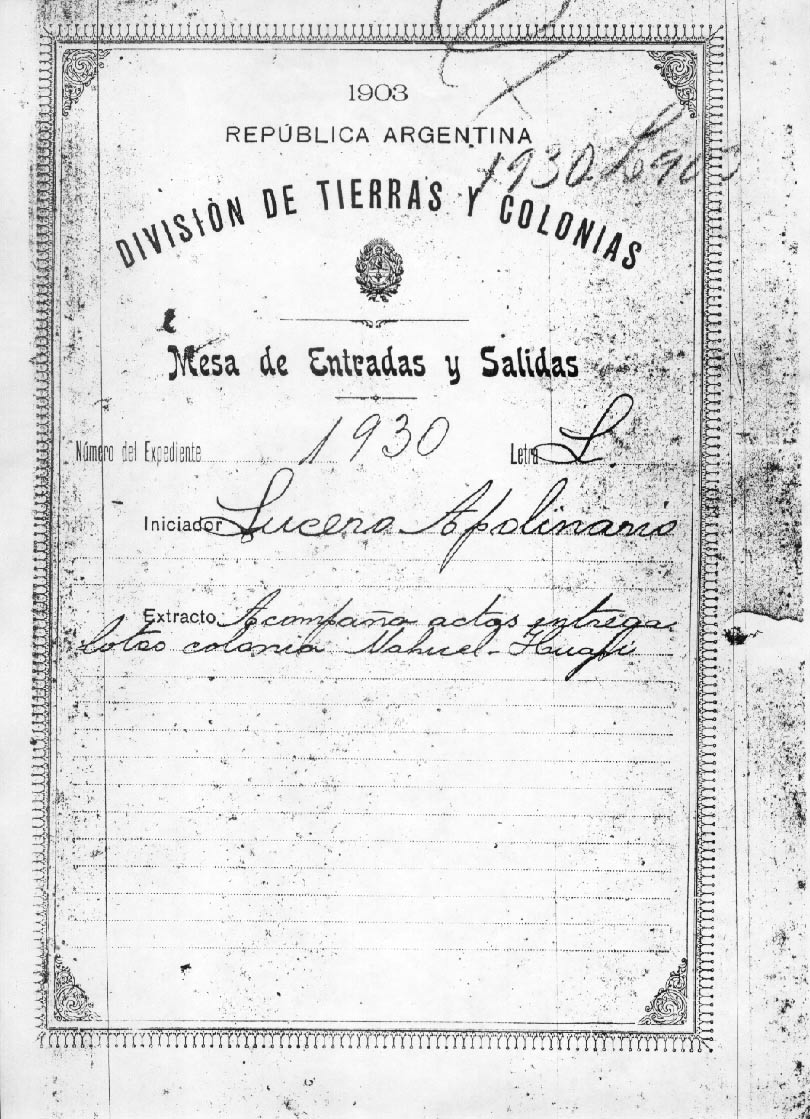 1903
REPÚBLICA ARGENTINA
1930. L 90
DIVISIÓN DE TIERRAS Y COLONIAS
Mesa de Entradas y Salidas
Número del Expediente 1930 Letra L.
Iniciador Lucero Apolinario
Extracto Acompaña actas entrega
lotes colonia Nahuel-Huapi